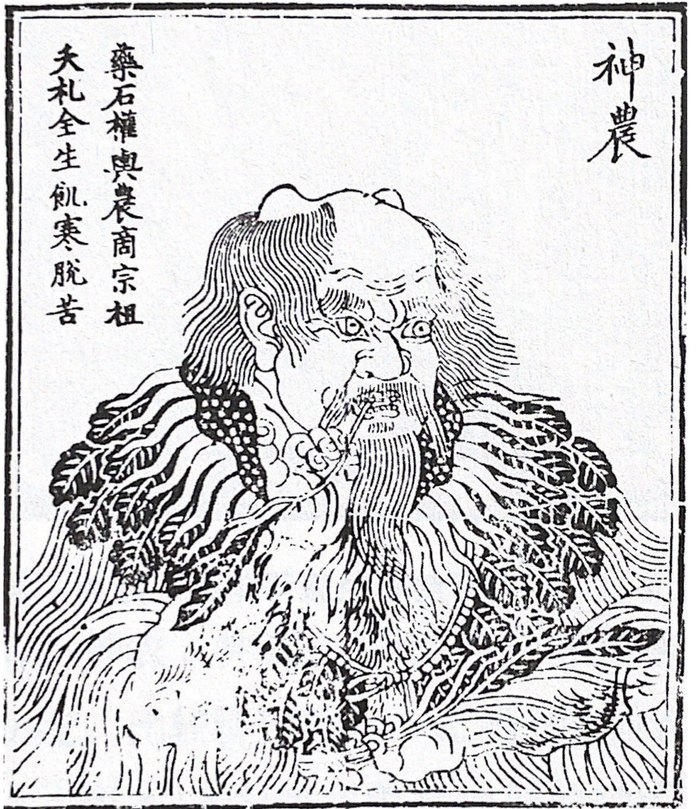 神農
藥石權輿農商宗祖
夭札全生飢寒脫苦